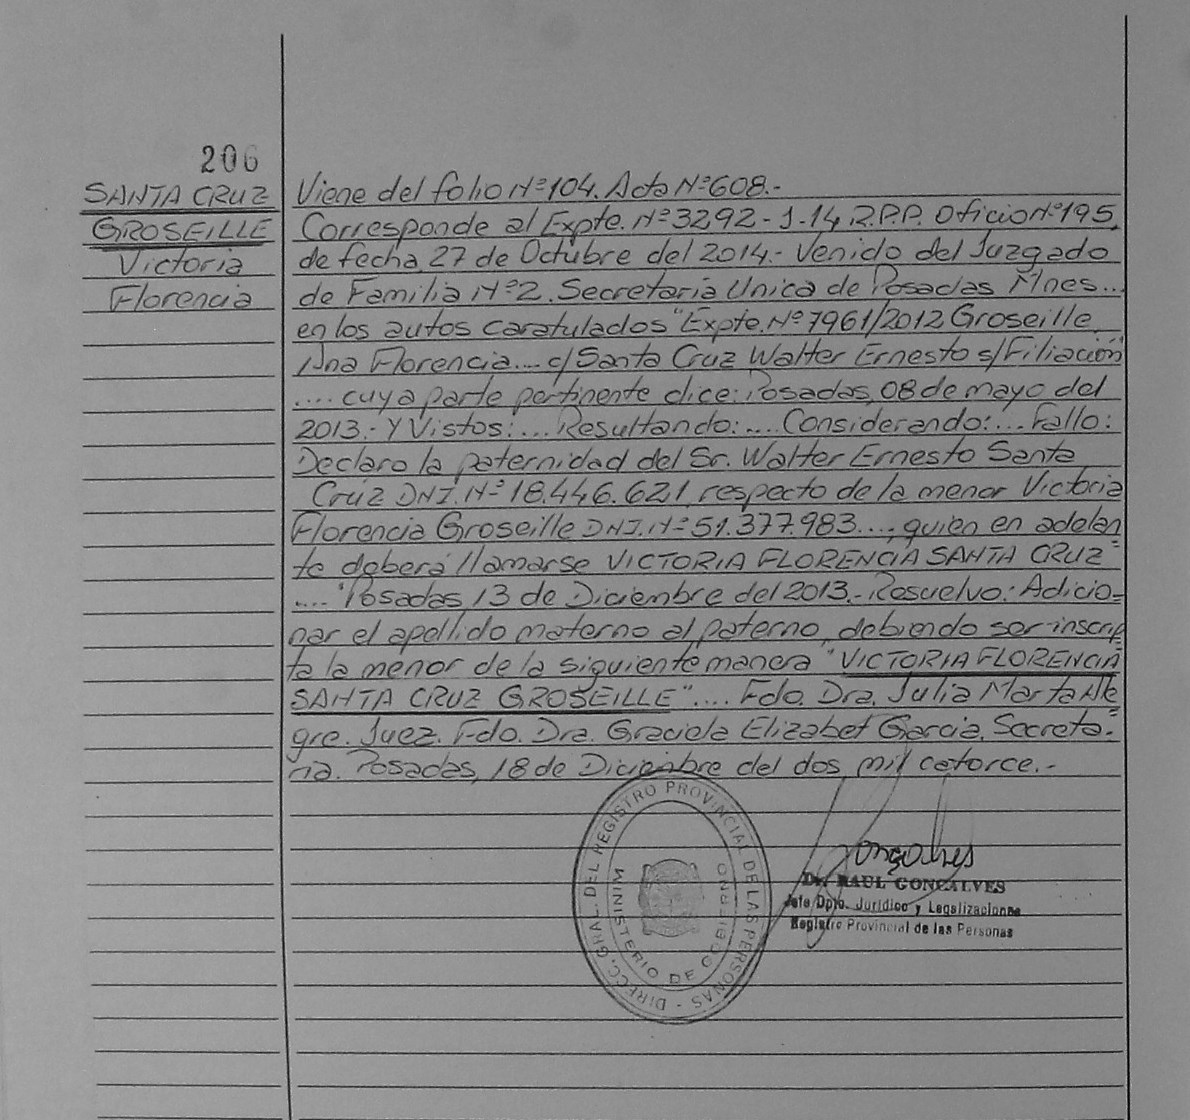 206
SANTA CRUZ
GROSEILLE
Victoria
Florencia
Viene del folio Nº 104. Acta Nº 608.-
Corresponde al Expte. Nº 3292-J-14 R.P.P. Oficio Nº 195,
de fecha 27 de Octubre del 2014.- Venido del Juzgado
de Familia Nº 2. Secretaria Unica de Posadas Mnes...
en los autos caratulados "Expte. Nº 7961/2012 Groseille
Ana Florencia.... c/ Santa Cruz Walter Ernesto s/ Filiación"
.... cuya parte pertinente dice: Posadas, 08 de mayo del
2013.- Y Vistos:.... Resultando:.... Considerando:... Fallo:
Declaro la paternidad del Sr. Walter Ernesto Santa
Cruz DNI. Nº 18.446.621 respecto de la menor Victoria
Florencia Groseille DNI. Nº 51.377.983...., quien en adelan
te deberá llamarse VICTORIA FLORENCIA SANTA CRUZ"
.... "Posadas, 13 de Diciembre del 2013.- Resuelvo: Adicio=
nar el apellido materno al paterno, debiendo ser inscrip
ta la menor de la siguiente manera "VICTORIA FLORENCIA
SANTA CRUZ GROSEILLE".... Fdo. Dra. Julia Marta Ale
gre. Juez. Fdo. Dra. Graciela Elizabet Garcia. Secreta=
ria. Posadas, 18 de Diciembre del dos mil catorce.-
DIRECC. GRAL. DEL REGISTRO PROVINCIAL DE LAS PERSONAS -
MINISTERIO DE GOBIERNO
Gonçalves
Dr. RAUL GONCALVES
Jefe Dpto. Jurídico y Legalizaciones
Registro Provincial de las Personas